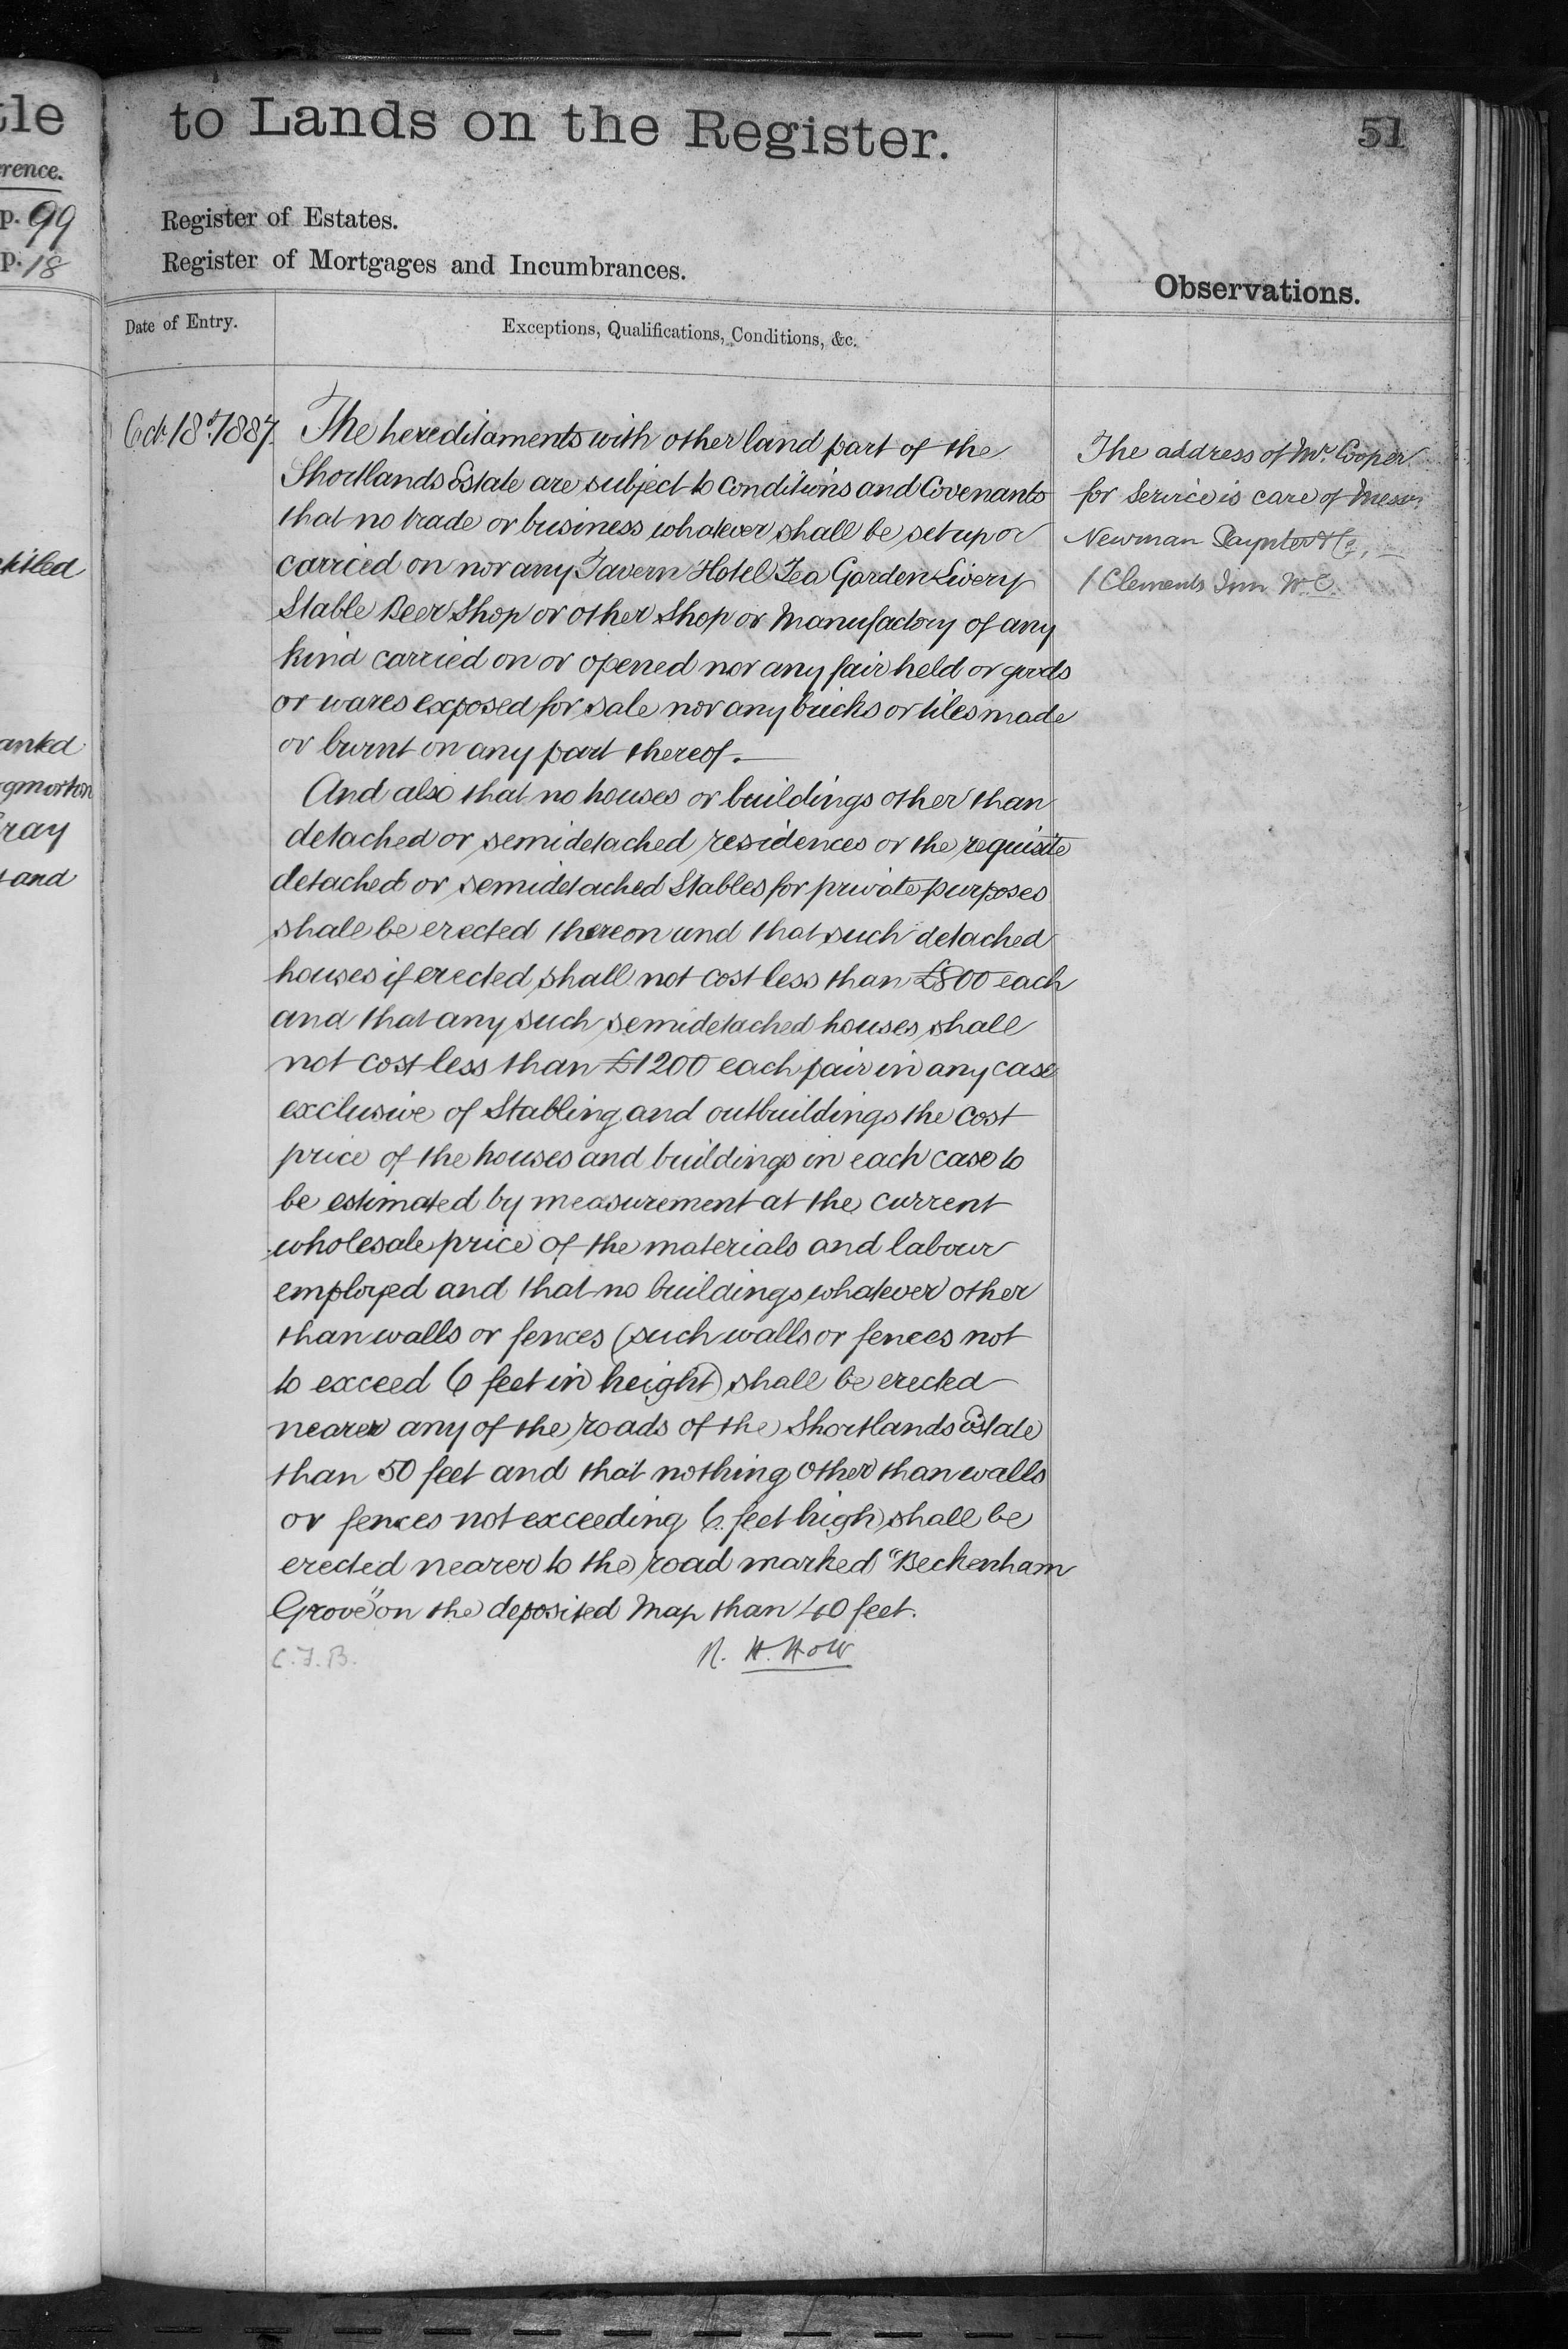 to Lands on the Register.
51
Register of Estates.
Register of Mortgages and Incumbrances.
Observations.
Date of Entry.
Exceptions, Qualifications, Conditions, &c.
Oct 18th 1887.
The hereditaments with other land part of the
Shortlands Estate are subject to Conditions and Covenants
that no trade or business whatever shall be set up or
carried on nor any Tavern Hotel Tea Garden Livery
Stable Beer Shop or other Shop or Manufactory of any
kind carried on or opened nor any fair held or goods
or wares exposed for sale nor any bricks or tiles made
or burnt on any part thereof.
And also that no houses or buildings other than
detached or semidetached residences or the requisite
detached or semidetached Stables for private purposes
shall be erected thereon and that such detached
houses if erected shall not cost less than £800 each
and that any such semidetached houses shall
not cost less than £1200 each pair in any case
exclusive of Stabling and outbuildings the cost
price of the houses and buildings in each case to
be estimated by measurement at the current
wholesale price of the materials and labour
employed and that no buildings whatever other
than walls or fences (such walls or fences not
to exceed 6 feet in height) shall be erected
nearer any of the roads of the Shortlands Estate
than 50 feet and that nothing other than walls
or fences not exceeding 6 feet high shall be
erected nearer to the road marked "Beckenham
Grove" on the deposited Map than 40 feet.
C.J.B.
R. H. How
The address of Mr. Cooper
for Service is care of Messrs
Newman Paynter & Co.
1 Clements Inn W.C.
tle
rence.
p. 99
p. 18
ntitled
anted
gmorton
ray
t and